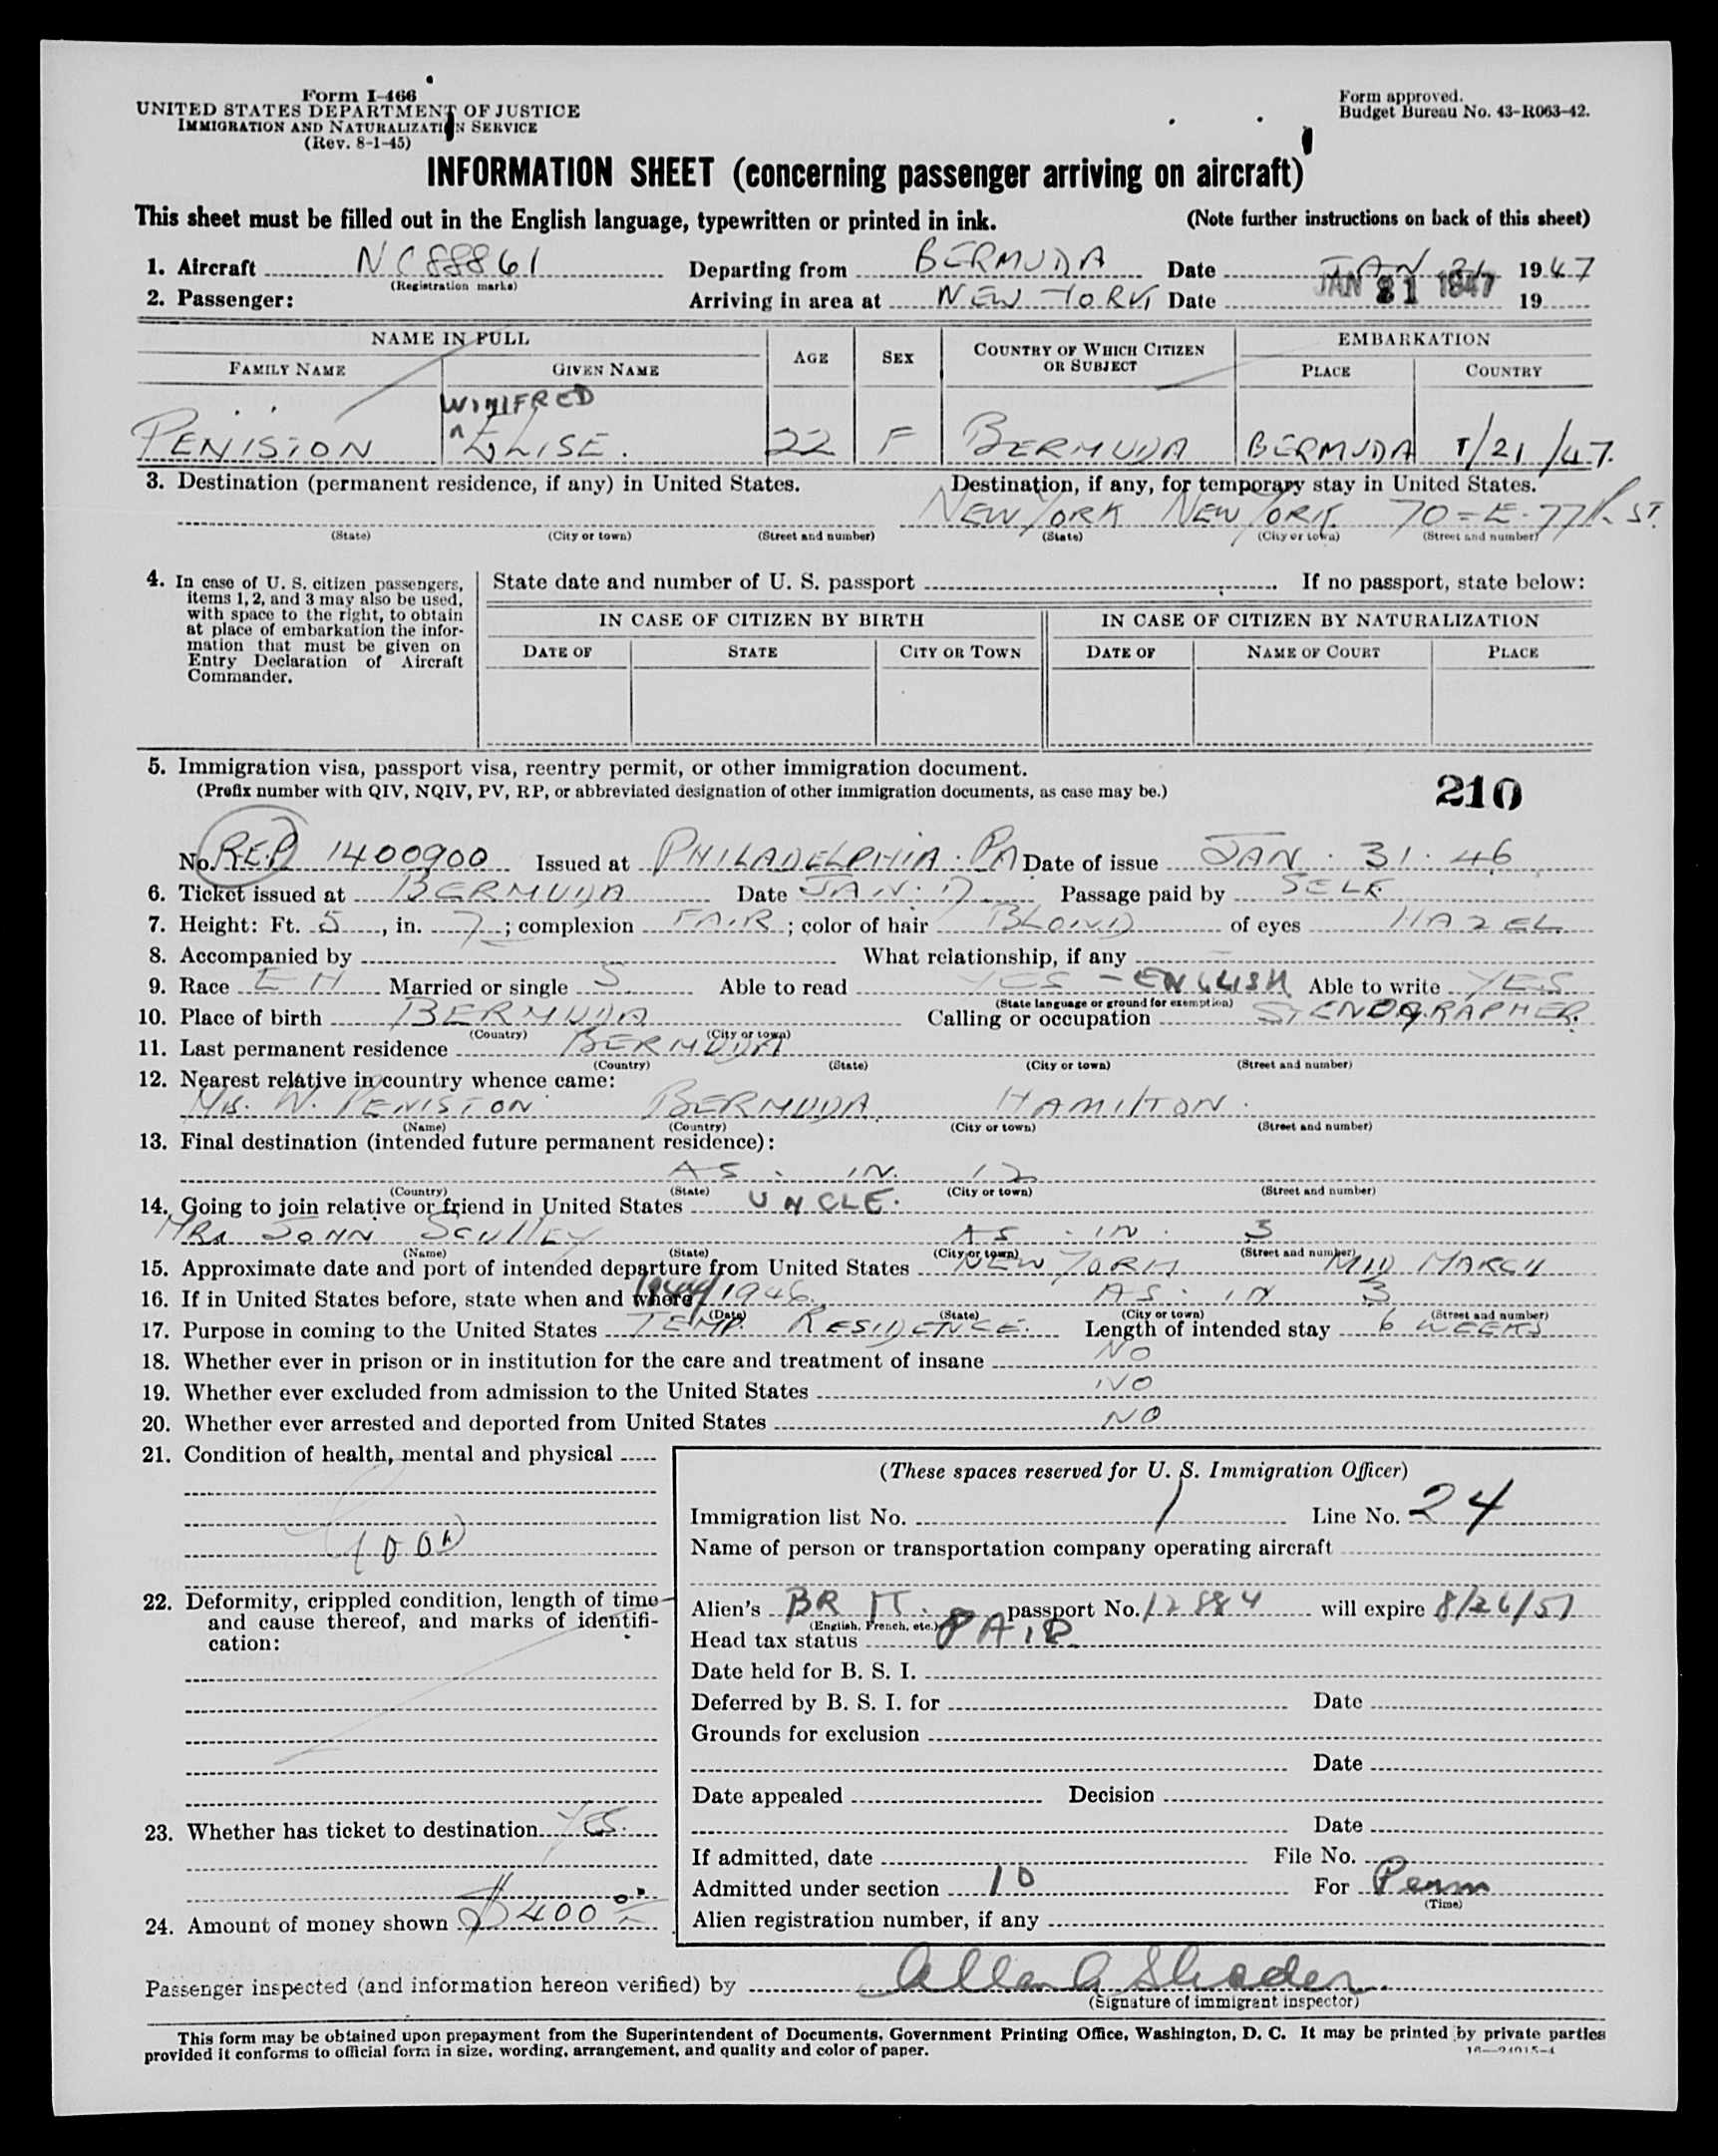 Form I-466
UNITED STATES DEPARTMENT OF JUSTICE
IMMIGRATION AND NATURALIZATION SERVICE
(Rev. 8-1-45)
Form approved.
Budget Bureau No. 43-R063-42.
INFORMATION SHEET (concerning passenger arriving on aircraft)
This sheet must be filled out in the English language, typewritten or printed in ink. (Note further instructions on back of this sheet)
1. Aircraft NC88861 Departing from BERMUDA Date JAN 21 1947
(Registration marks)
2. Passenger: Arriving in area at NEW YORK Date JAN 21 1947 19
NAME IN FULL AGE SEX COUNTRY OF WHICH CITIZEN OR SUBJECT EMBARKATION
FAMILY NAME GIVEN NAME PLACE COUNTRY
WINIFRED
PENISTON ^ ELISE. 22 F BERMUDA BERMUDA 1/21/47.
3. Destination (permanent residence, if any) in United States. Destination, if any, for temporary stay in United States.
NEW YORK NEW YORK 70 = E. 77 ST.
(State) (City or town) (Street and number) (State) (City or town) (Street and number)
4. In case of U. S. citizen passengers, items 1, 2, and 3 may also be used, with space to the right, to obtain at place of embarkation the information that must be given on Entry Declaration of Aircraft Commander.
State date and number of U. S. passport If no passport, state below:
IN CASE OF CITIZEN BY BIRTH IN CASE OF CITIZEN BY NATURALIZATION
DATE OF STATE CITY OR TOWN DATE OF NAME OF COURT PLACE
5. Immigration visa, passport visa, reentry permit, or other immigration document.
(Prefix number with QIV, NQIV, PV, RP, or abbreviated designation of other immigration documents, as case may be.)
210
No. REP 1400900 Issued at PHILADELPHIA. PA Date of issue JAN. 31. 46
6. Ticket issued at BERMUDA Date JAN. 17 Passage paid by SELF.
7. Height: Ft. 5, in. 7; complexion FAIR; color of hair BLOND of eyes HAZEL
8. Accompanied by What relationship, if any
9. Race EH Married or single S Able to read YES - ENGLISH Able to write YES
(State language or ground for exemption)
10. Place of birth BERMUDA Calling or occupation STENOGRAPHER.
(Country) (City or town)
11. Last permanent residence BERMUDA
(Country) (State) (City or town) (Street and number)
12. Nearest relative in country whence came:
W. PENISTON BERMUDA. HAMILTON.
(Name) (Country) (City or town) (Street and number)
13. Final destination (intended future permanent residence):
AS. IN. 12
(Country) (State) (City or town) (Street and number)
14. Going to join relative or friend in United States UNCLE.
MRS JOHN SCULLEY AS. IN. 3
(Name) (State) (City or town) (Street and number)
15. Approximate date and port of intended departure from United States NEW YORK MID MARCH
16. If in United States before, state when and where 1944/1946. AS. IN 3
(Date) (State) (City or town) (Street and number)
17. Purpose in coming to the United States TEMP. RESIDENCE. Length of intended stay 6 WEEKS
18. Whether ever in prison or in institution for the care and treatment of insane NO
19. Whether ever excluded from admission to the United States NO
20. Whether ever arrested and deported from United States NO
21. Condition of health, mental and physical
GOOD
22. Deformity, crippled condition, length of time and cause thereof, and marks of identification:
23. Whether has ticket to destination YES.
24. Amount of money shown $400 00
(These spaces reserved for U. S. Immigration Officer)
Immigration list No. 1 Line No. 24
Name of person or transportation company operating aircraft
Alien's BRIT. passport No. 12884 will expire 8/26/51
(English, French, etc.)
Head tax status PAID
Date held for B. S. I.
Deferred by B. S. I. for Date
Grounds for exclusion
Date
Date appealed Decision
Date
If admitted, date File No.
Admitted under section 10 For Perm
(Time)
Alien registration number, if any
Passenger inspected (and information hereon verified) by Allan A Shader
(Signature of immigrant inspector)
This form may be obtained upon prepayment from the Superintendent of Documents, Government Printing Office, Washington, D. C. It may be printed by private parties
provided it conforms to official form in size, wording, arrangement, and quality and color of paper.
16—24915-4